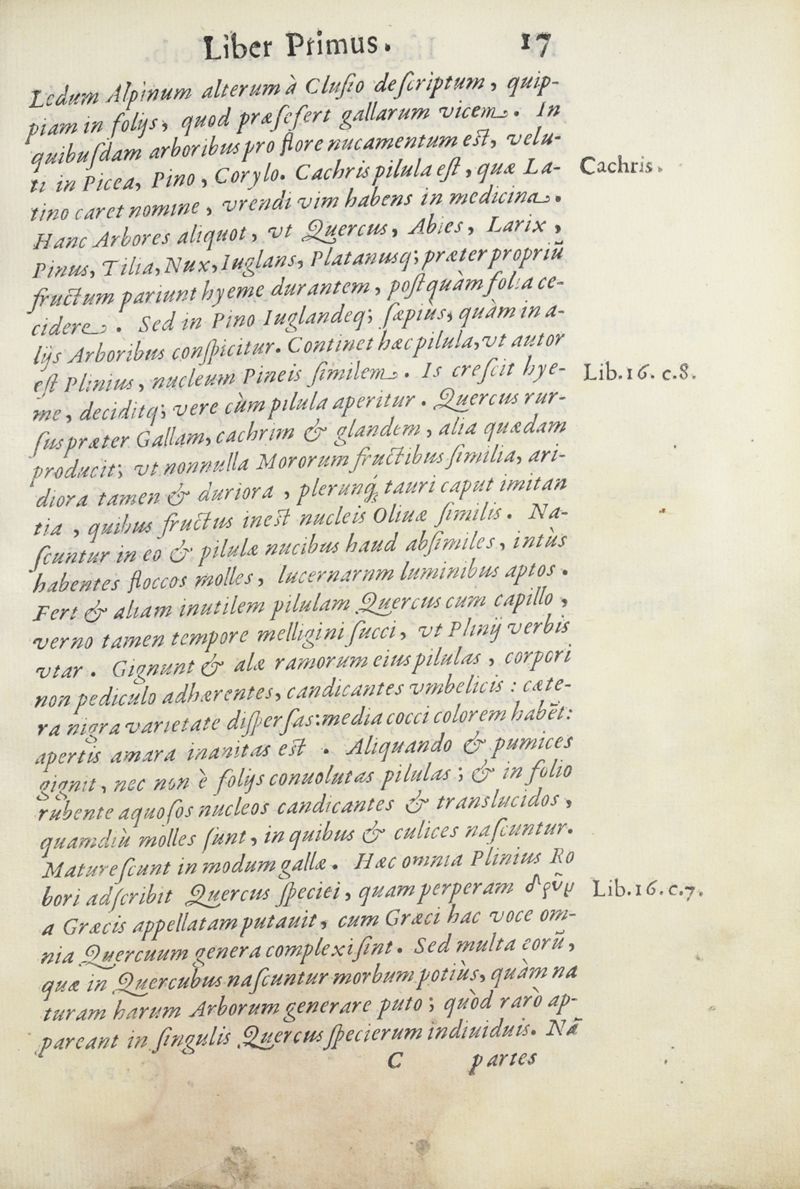 Liber Primus. 17
Ledum Alpinum alterum à Clusio descriptum, quip-
piam in folijs, quod præsefert gallarum vicem. In
quibusdam arboribus pro flore nucamentum est, velu-
ti in Picea, Pino, Corylo. Cachris pilula est, quæ La-
Cachris.
tino caret nomine, vrendi vim habens in medicina.
Hanc Arbores aliquot, vt Quercus, Abies, Larix,
Pinus, Tilia, Nux, Iuglans, Platanusq; præter propriũ
fructum pariunt hyeme durantem, postquàm folia ce-
cidere. Sed in Pino Iuglandeq; sæpius, quàm in a-
lijs Arboribus conspicitur. Continet hæc pilula, vt autor
est Plinius, nucleum Pineis similem. Is crescit hye-
Lib.16. c.8.
me, deciditq; vere cùm pilula aperitur. Quercus rur-
sus præter Gallam, cachrim & glandem, alia quædam
producit; vt nonnulla Mororum fructibus similia, ari-
diora tamen & duriora, plerunq; tauri caput imitan
tia, quibus fructus inest nucleis Oliuæ similis. Na-
scuntur in eo & pilulæ nucibus haud absimiles, intùs
habentes floccos molles, lucernarnm luminibus aptos.
Fert & aliam inutilem pilulam Quercus cum capillo,
verno tamen tempore melligini succi, vt Plinij verbis
vtar. Gignunt & alæ ramorum eius pilulas, corpori
non pediculo adhærentes, candicantes vmbelicis: cæte-
ra nigra varietate dispersas: media cocci colorem habẽt:
apertis amara inanitas est. Aliquando & pumices
gignit, nec non è folijs conuolutas pilulas; & in folio
rubente aquosos nucleos candicantes & translucidos,
quamdiù molles sunt, in quibus & culices nascuntur.
Maturescunt in modum gallæ. Hæc omnia Plinius Ro
bori adscribit Quercus speciei, quam perperam δρῦν
Lib.16.c.7.
a Græcis appellatam putauit, cum Græci hac voce om-
nia Quercuum genera complexi sint. Sed multa eorũ,
quæ in Quercubus nascuntur morbum potiùs, quàm na
turam harum Arborum generare puto; quòd rarò ap-
pareant in singulis Quercus specierum indiuiduis. Nã
C partes